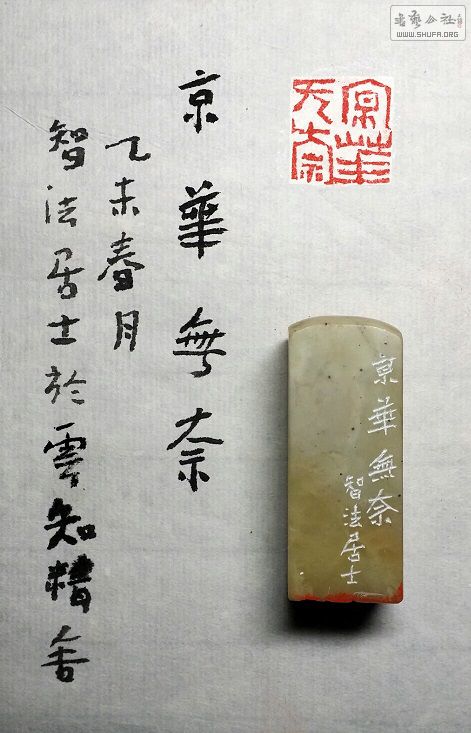 書藝公社
WWW.SHUFA.ORG
京華无奈
京華無奈
乙未春月
智法居士於雲知精舍
京華無奈
智法居士